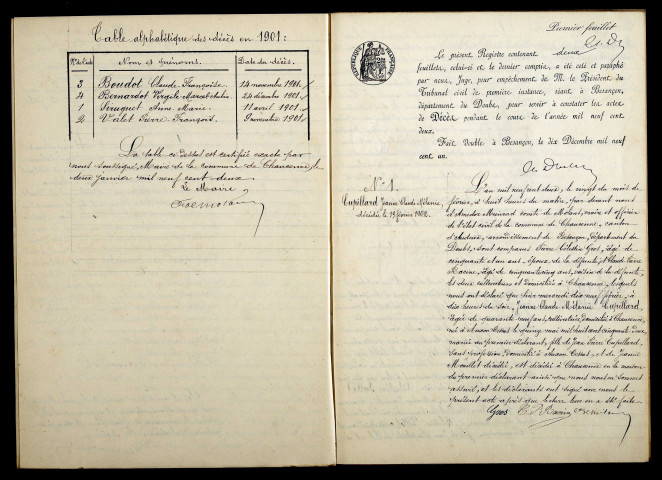 Table alphabétique des décès en 1901:
Nos de l'acte Noms et prénoms. Date du décès.
3 Boudot Claude Françoise 14 novembre 1901.
4 Bernardot Virgile Marcel 24 décembre 1901.
1 Peruguet Anne Marie 11 avril 1901.
2 Valet Pierre François 9 novembre 1901
La table ci-dessus est certifiée exacte par
nous soussigné, Maire de la commune de Chaucenne, le
deux janvier mil neuf cent deux
Le Maire,
Premier feuillet
Le présent Registre contenant deux
feuillets, celui-ci et le dernier compris, a été coté et paraphé
par nous, Juge, pour empêchement de M. le Président du
Tribunal civil de première instance, séant à Besançon,
département du Doubs, pour servir à constater les actes
de Décès pendant le cours de l'année mil neuf cent
deux.
Fait double à Besançon, le dix Décembre mil neuf
cent un.
RÉPUBLIQUE FRANÇAISE
N° 1.
Cupillard Jeanne Claude Mélanie,
décédée le 19 février 1902.
L'an mil neuf cent deux, le vingt du mois de
février, à huit heures du matin, par devant nous
d'Amedor Meinrad comte de Molans, maire et officier
de l'état civil de la commune de Chaucenne, canton
d'Audeux, arrondissement de Besançon, département du
Doubs, sont comparus Pierre Célestin Gros, âgé de
cinquante et un ans, époux de la défunte, et Claude Pierre
Racine, âgé de cinquante cinq ans, voisin de la défunte,
les deux cultivateurs et domiciliés à Chaucenne, lesquels
nous ont déclaré que hier mercredi dix neuf février, à
dix heures du soir, Jeanne Claude Mélanie Cupillard,
âgée de quarante neuf ans, cultivatrice, domiciliée à Chaucenne,
née à le quinze mai mil huit cent cinquante deux,
mariée au premier déclarant, fille de Jean Pierre Cupillard
sans profession, domicilié à et de Jeanne
décédée, est décédée à Chaucenne en la maison
du premier déclarant ainsi que nous nous en sommes
assuré, et les déclarants ont signé avec nous le
présent acte après que lecture leur en a été faite.
Gros C. P. Racine